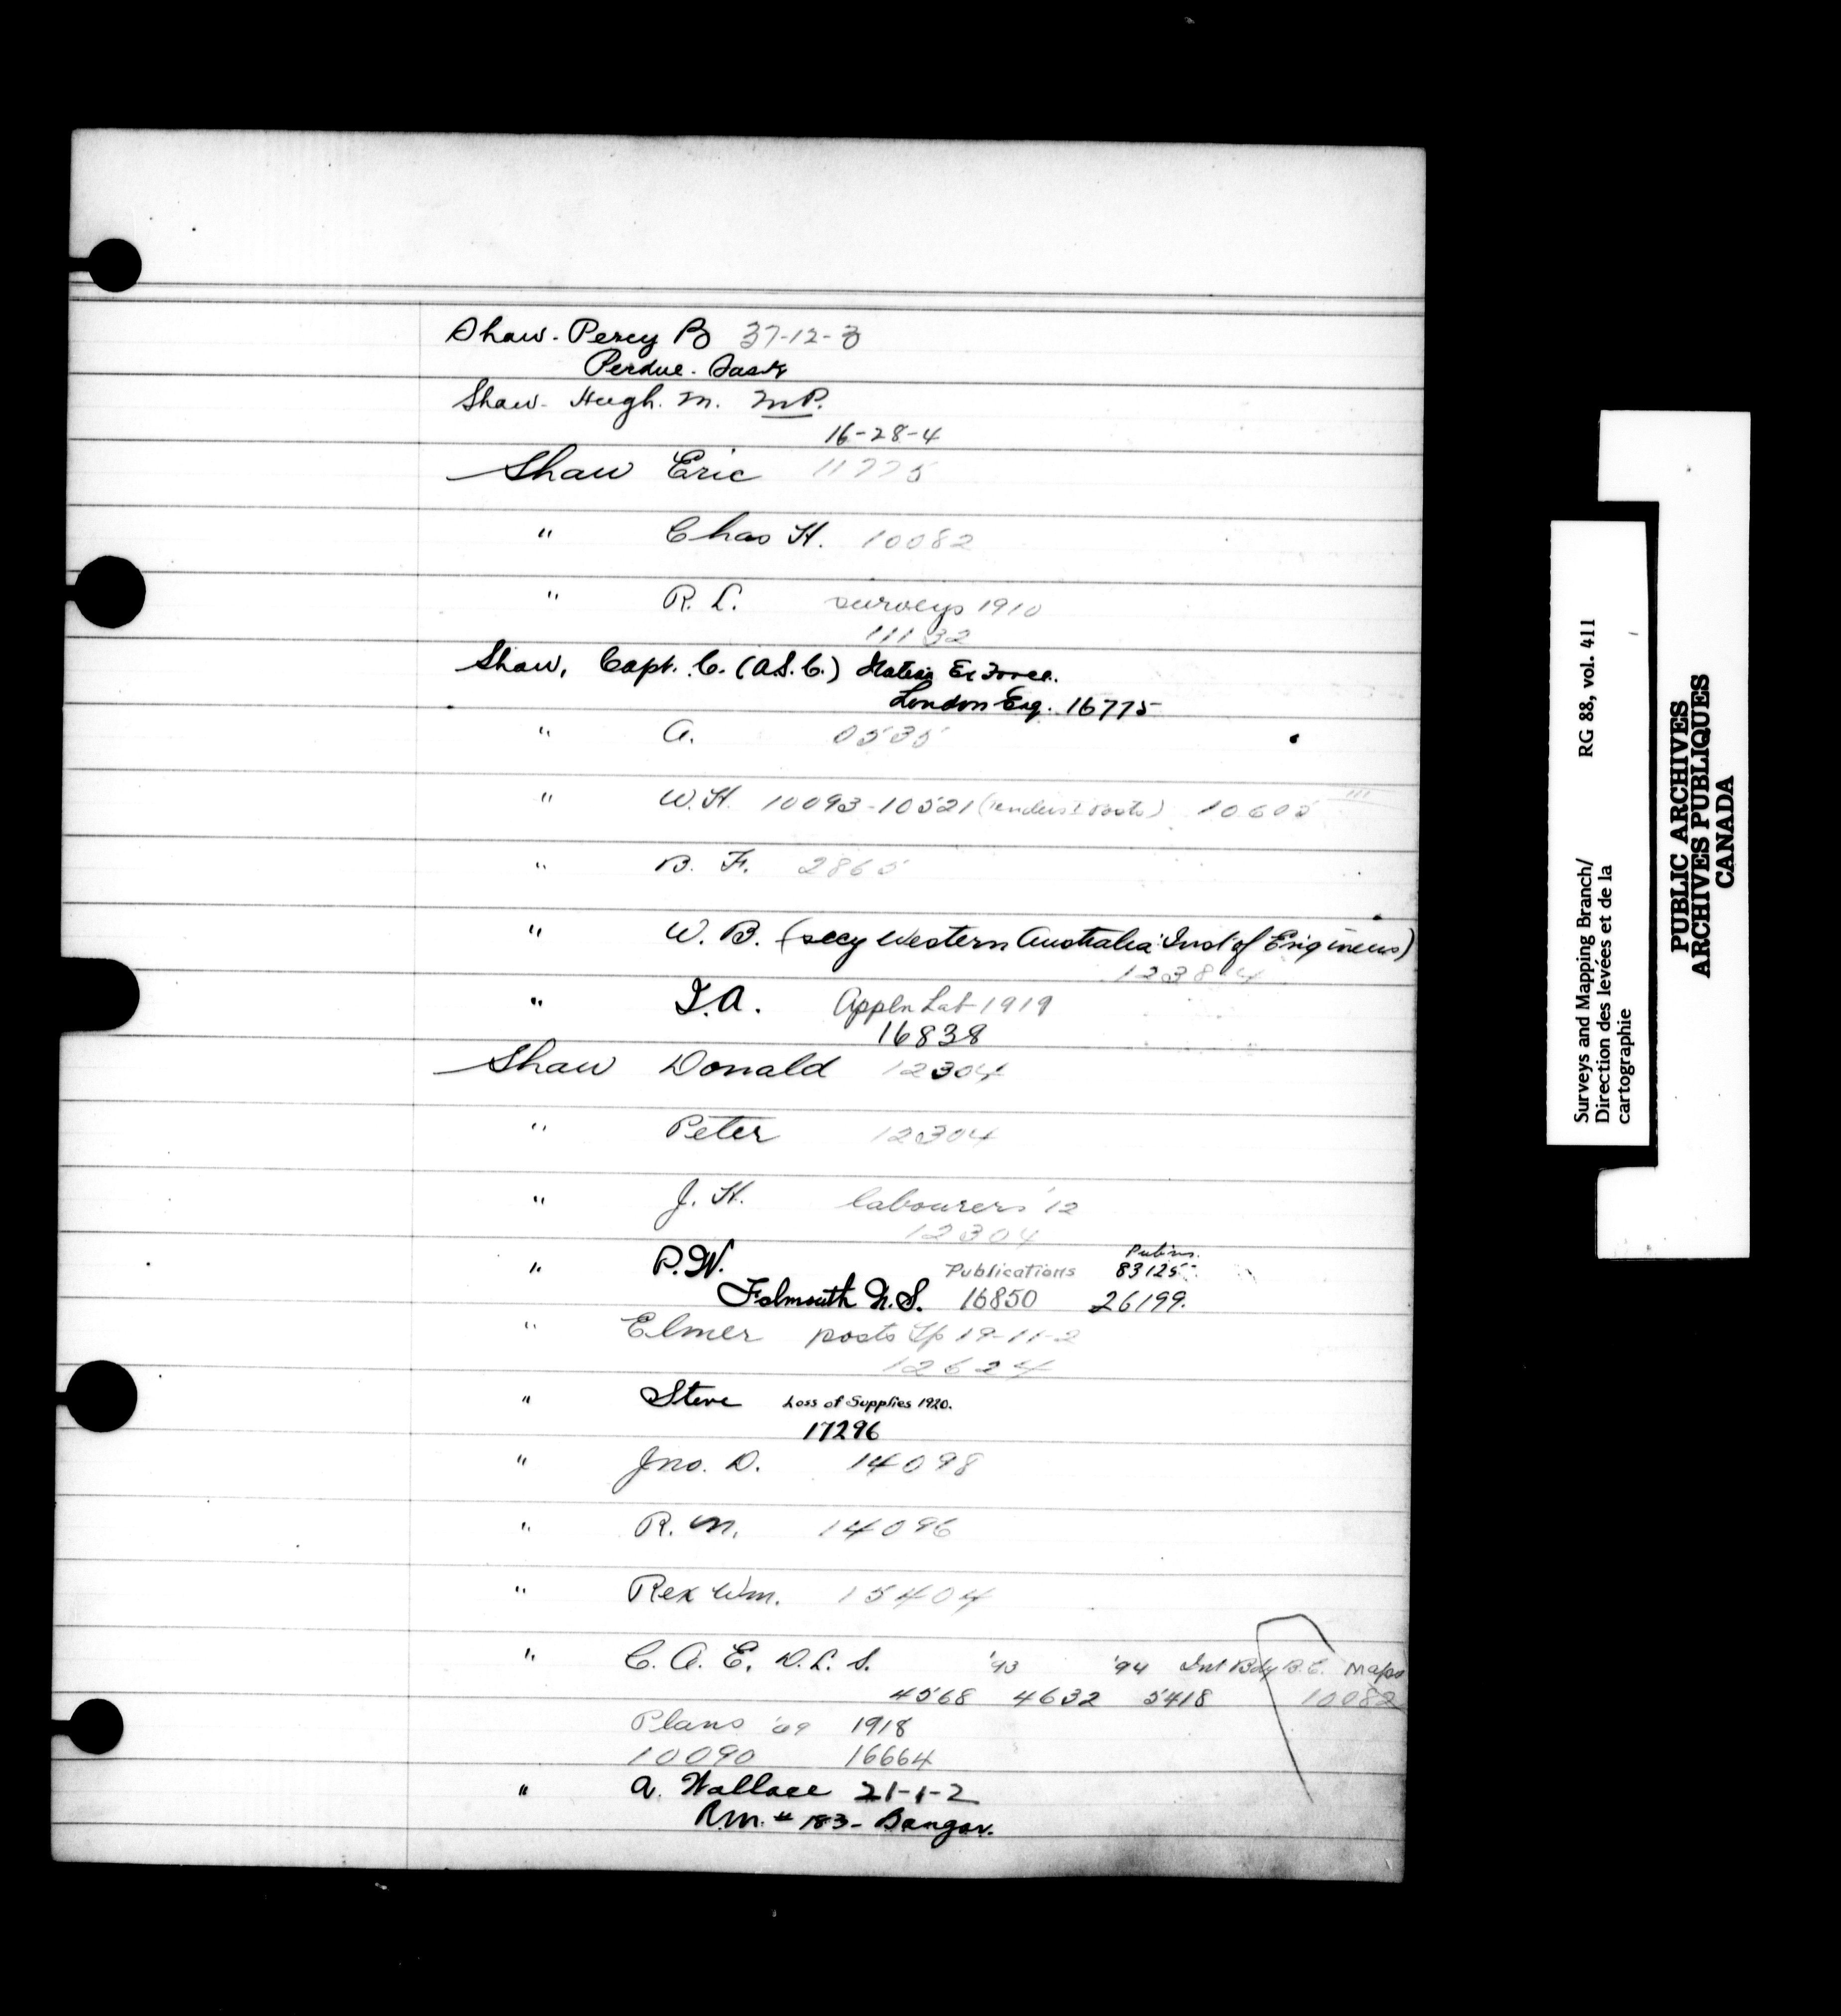 Shaw - Percy B 37-12-3
Perdue - Sask
Shaw - Hugh. M. M.P.
16-28-4
Shaw Eric 11775
" Chas H. 10082
" R. L. surveys 1910
11132
Shaw, Capt. C. (A.S.C.) Ex Force.
London Eng. 16775
" A. 0535
" W.H. 10093-10521 (tenders posts) 10605
" B. F. 2865
" W. B. (secy Western Australia Inst of Engineers)
12384
" I.A. Appln Lab 1919
16838
Shaw Donald 12304
" Peter 12304
" J. H. labourers '12
12304
" P.W. Publications Pubns. 83125
Falmouth N.S. 16850 26199.
" Elmer posts Tp 19-11-2
12624
" Steve Loss of Supplies 1920.
17296
" Jno. D. 14098
" R. M. 14096
" Rex Wm. 15404
" C. A. E. D. L. S. '93 '94 Int Bdy B.C. Maps
4568 4632 5418 10082
Plans '09 1918
10090 16664
" A. Wallace 21-1-2
R.M. # 183 - Bangor.
Surveys and Mapping Branch/ RG 88, vol. 411
Direction des levées et de la
cartographie
PUBLIC ARCHIVES
ARCHIVES PUBLIQUES
CANADA